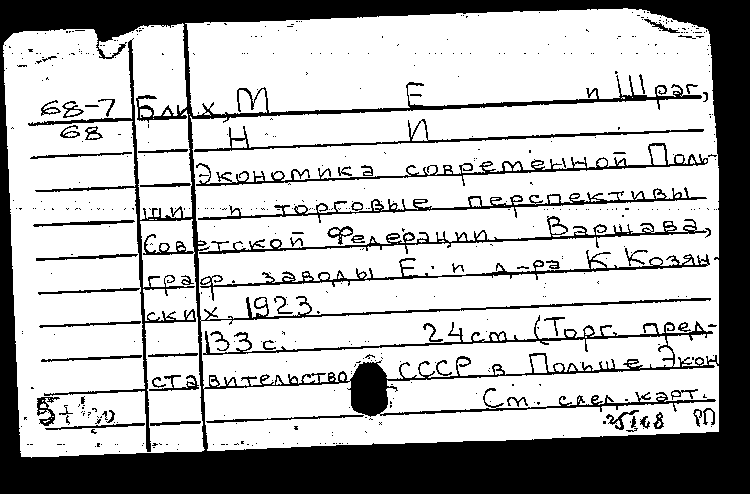 68-7 Блих, М Е и Шраг,
68 Н И
Экономика современной Поль-
ши и торговые перспективы
Советской Федерации. Варшава,
граф. заводы Е. и д-ра К. Козян-
ских, 1923.
133 с. 24 см. (Торг. пред-
ставительство СССР в Польше. Экон
См. след. карт.
25 I 68 РП